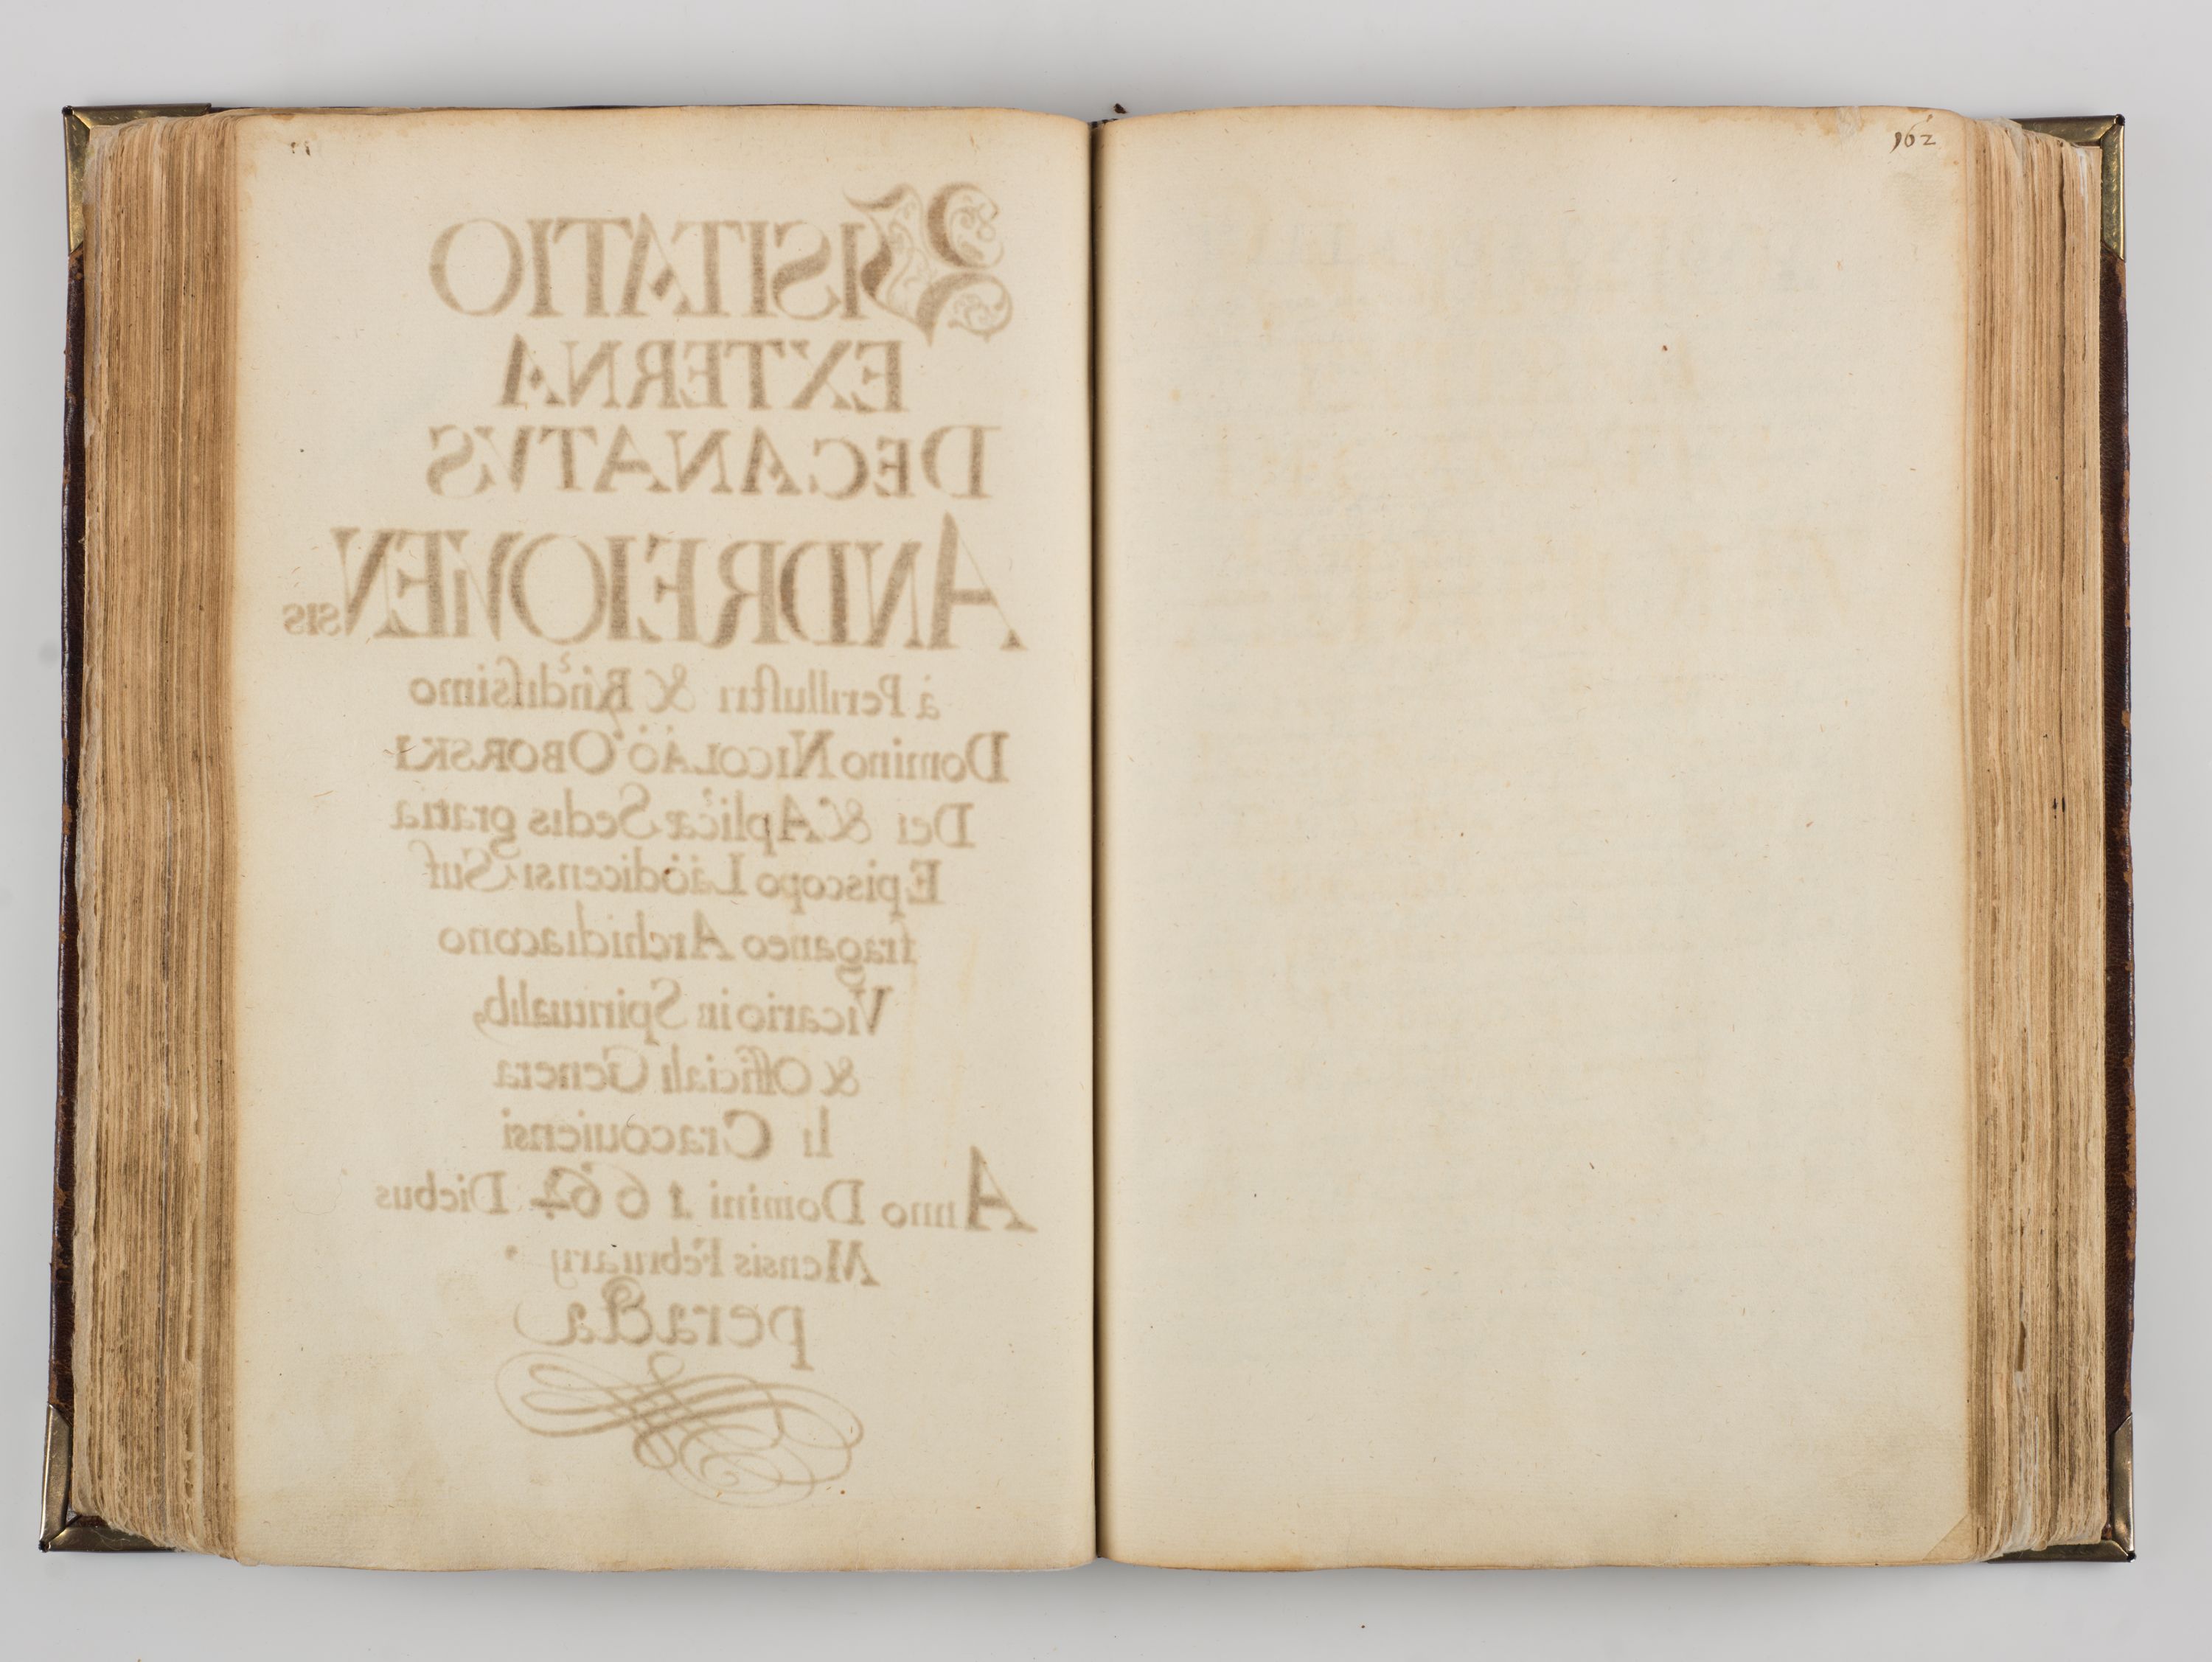 VISITATIO
EXTERNA
DECANATVS
ANDREIOVIENsis
à Perillustri & Rñdissimo
Domino NICOLAO OBORSKI
Dei & Aplicæ Sedis gratia
Episcopo Laodicensi Suf
fraganeo Archidiacono
Vicario in Spiritualib9
& Officiali Genera
li Cracouiensi
Anno Domini 1664 Diebus
Mensis February
peracta
162